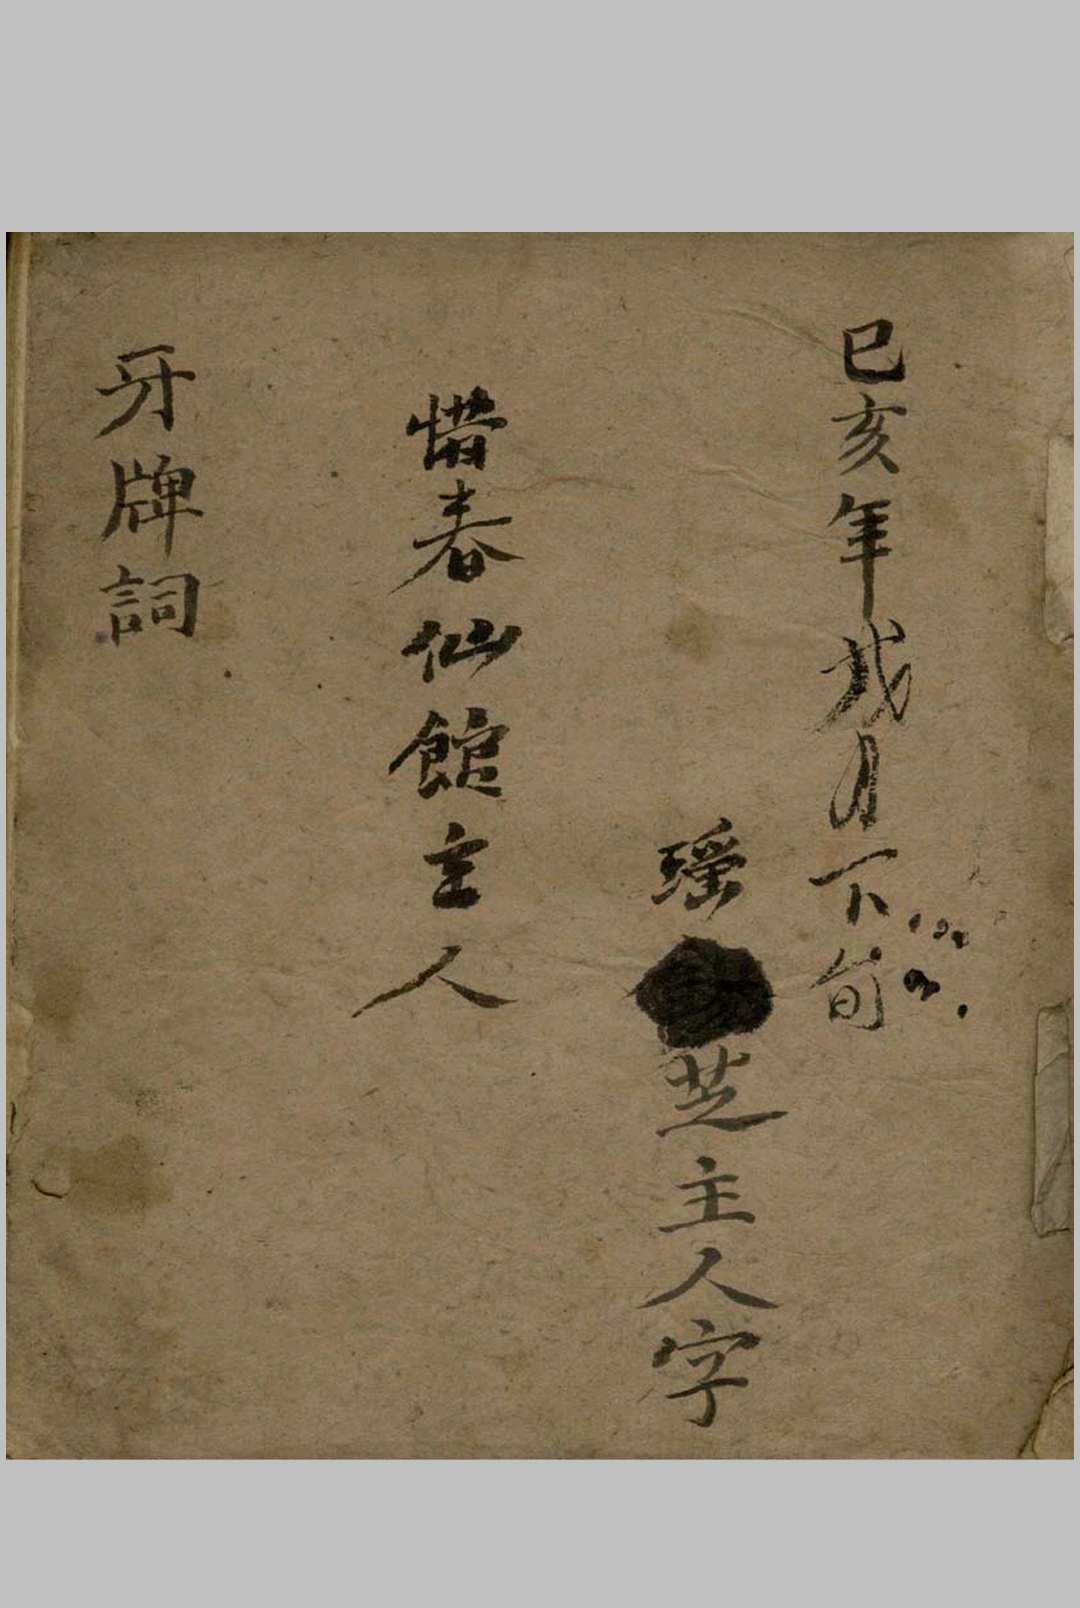 己亥年戌月下旬
瑶芝主人字
惜春仙館主人
牙牌詞